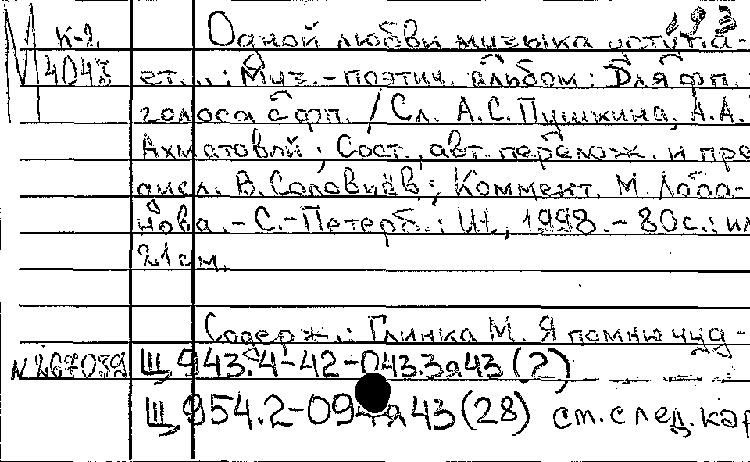 193
К-2. Одной любви музыка уступа-
М 4043 ет...: Муз.-поэтич. альбом: Для фп.
голоса с фп. / Сл. А.С. Пушкина, А.А.
Ахматовой; Сост., авт. перелож. и пре
дисл. В. Соловьёв; Коммент. М. Лоба-
нова. - С.-Петерб.: 1998. - 80с.: ил
21см.
Содерж.: Глинка М. Я помню чуд-
N 267039 Щ 943.4-42-043.3я43(2)
Щ 954.2-09 я43(28) см. след. кар